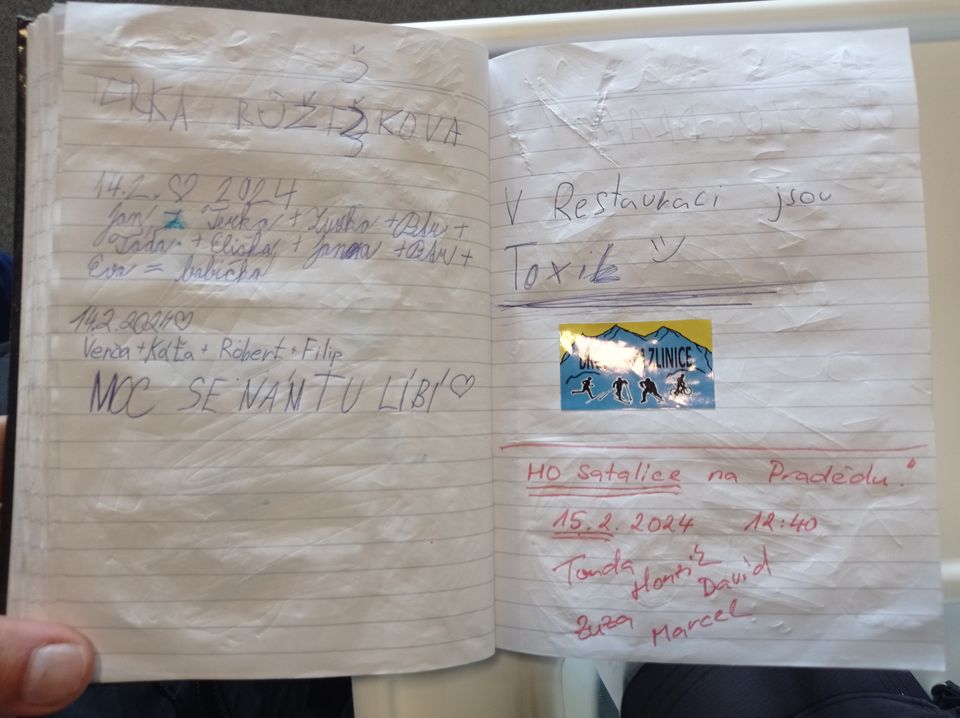 TERKA RŮŽIŠKOVA
14.2. ♡ 2024
Jan + Terka + + +
+ Eliška + + +
Eva = babička
14.2.2024♡
Verča + Káťa + Róbert + Filip
MOC SE NÁM TU LÍBÍ ♡
V Restauraci jsou
Toxik
HO Satalice na Pradědu."
15.2. 2024 12:40
Tonda Honzík David
Zuza Marcel